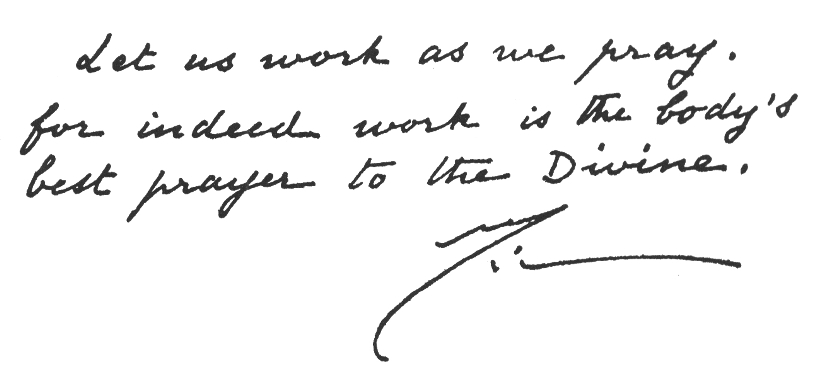 Let us work as we pray.
for indeed work is the body's
best prayer to the Divine.